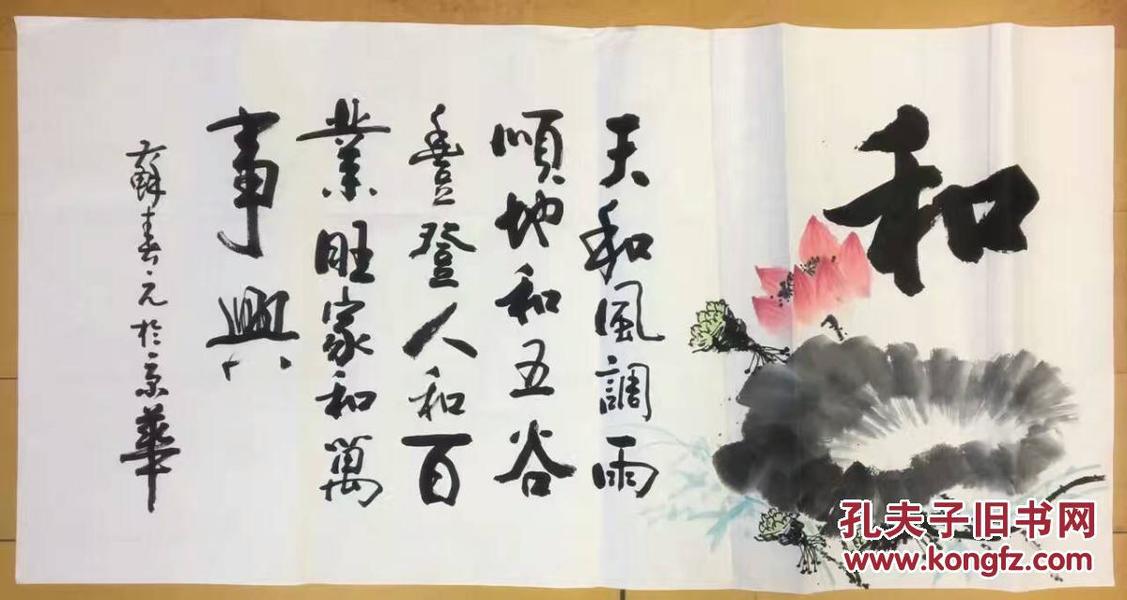 和
天和風調雨
順地和五谷
豊登人和百
業旺家和萬
事興
蘇春元於京華
孔夫子旧书网
www.kongfz.com